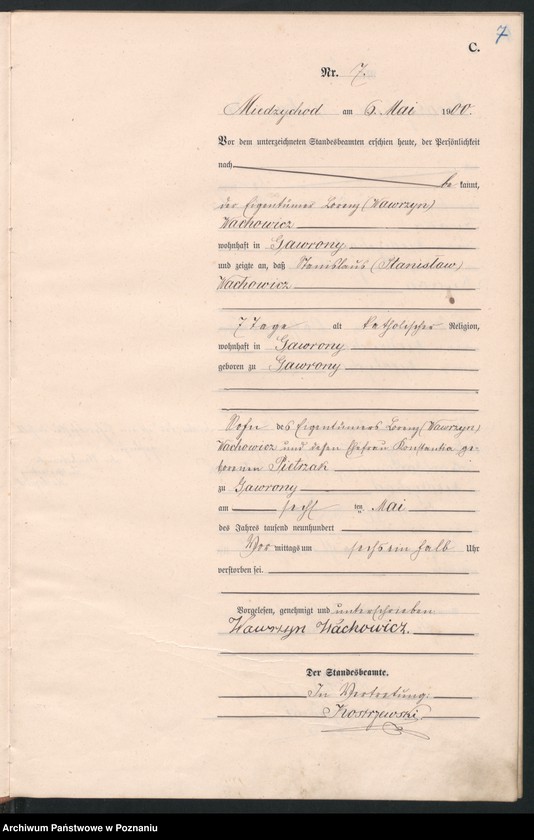 7
C.
Nr. 7.
Miedzychod am 6. Mai 1900.
Vor dem unterzeichneten Standesbeamten erschien heute, der Persönlichkeit
nach
be kannt,
der Eigentümer Lorenz (Wawrzyn)
Wachowicz
wohnhaft in Gawrony
und zeigte an, daß Stanislaus (Stanisław)
Wachowicz
7 Tage alt katholischer Religion,
wohnhaft in Gawrony
geboren zu Gawrony
Sohn des Eigentümers Lorenz (Wawrzyn)
Wachowicz und dessen Ehefrau Konstantia ge-
borenen Pietrzak
zu Gawrony
am sechs ten Mai
des Jahres tausend neunhundert
Vor mittags um sechseinhalb Uhr
verstorben sei.
Vorgelesen, genehmigt und unterschrieben
Wawrzyn Wachowicz.
Der Standesbeamte.
In Vertretung.
Kostrzewski
Archiwum Państwowe w Poznaniu